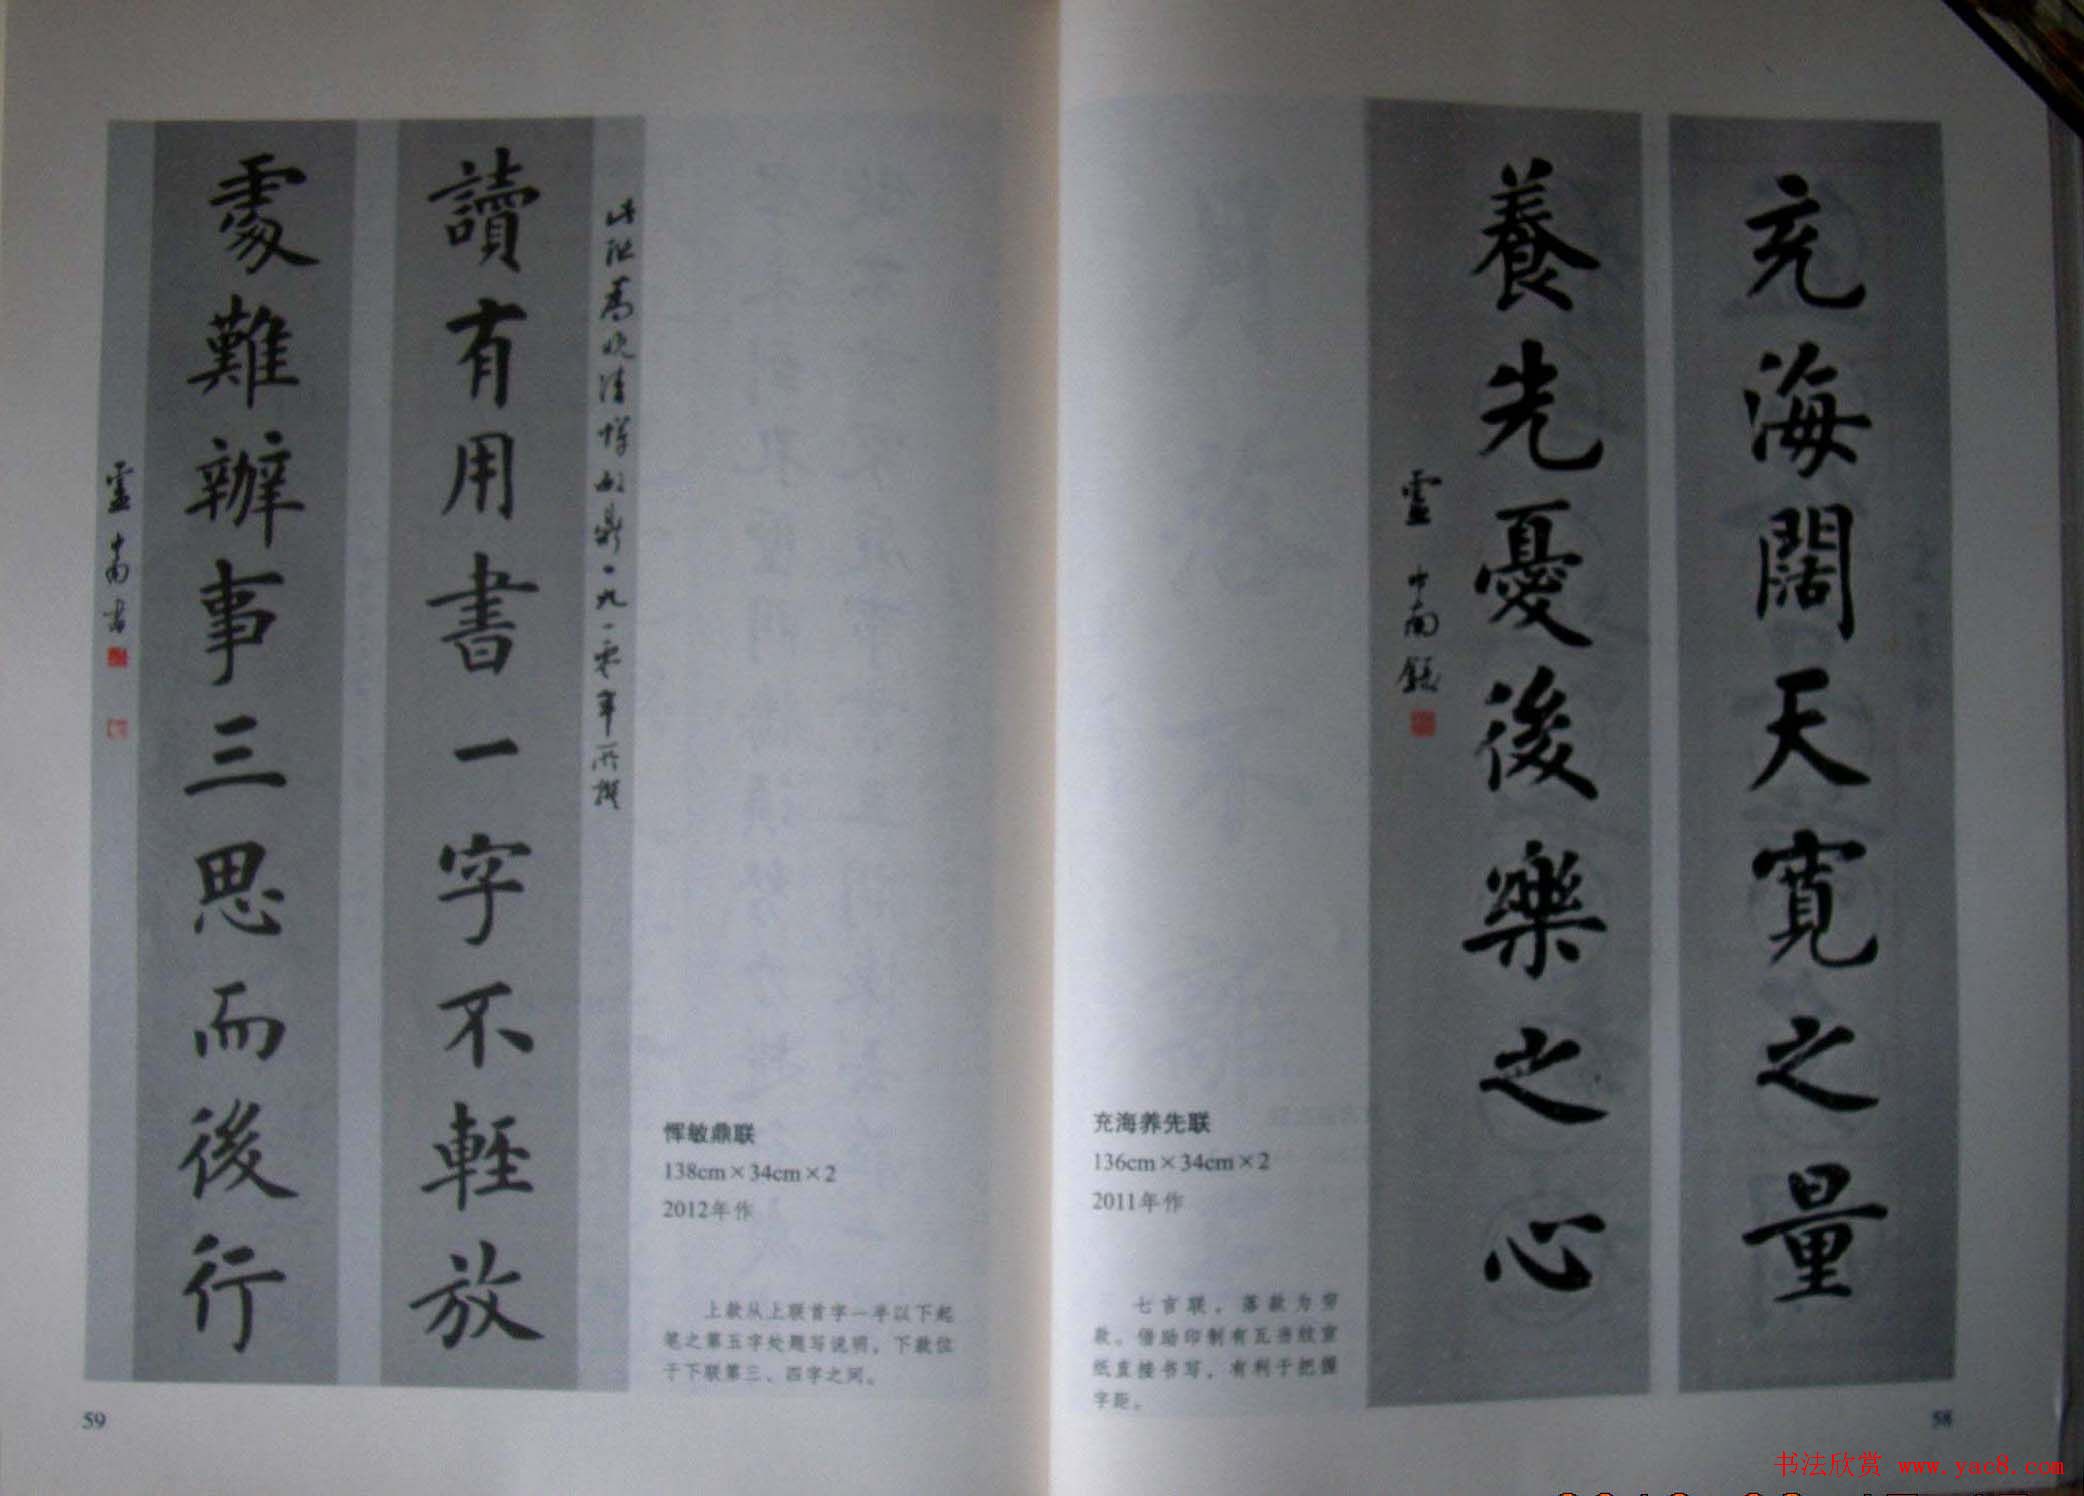 充海闊天寬之量
養先憂後樂之心
盧中南題
充海养先联
136cm×34cm×2
2011年作
七言联，落款为穷
款。借助印制有瓦当纹宣
纸直接书写，有利于把握
字距。
58
此联為晚清惲敏鼎一九一零年所撰
讀有用書一字不輕放
處難辦事三思而後行
盧中南書
恽敏鼎联
138cm×34cm×2
2012年作
上款从上联首字一半以下起
笔之第五字处题写说明，下款位
于下联第三、四字之间。
59
书法欣赏 www.yac8.com